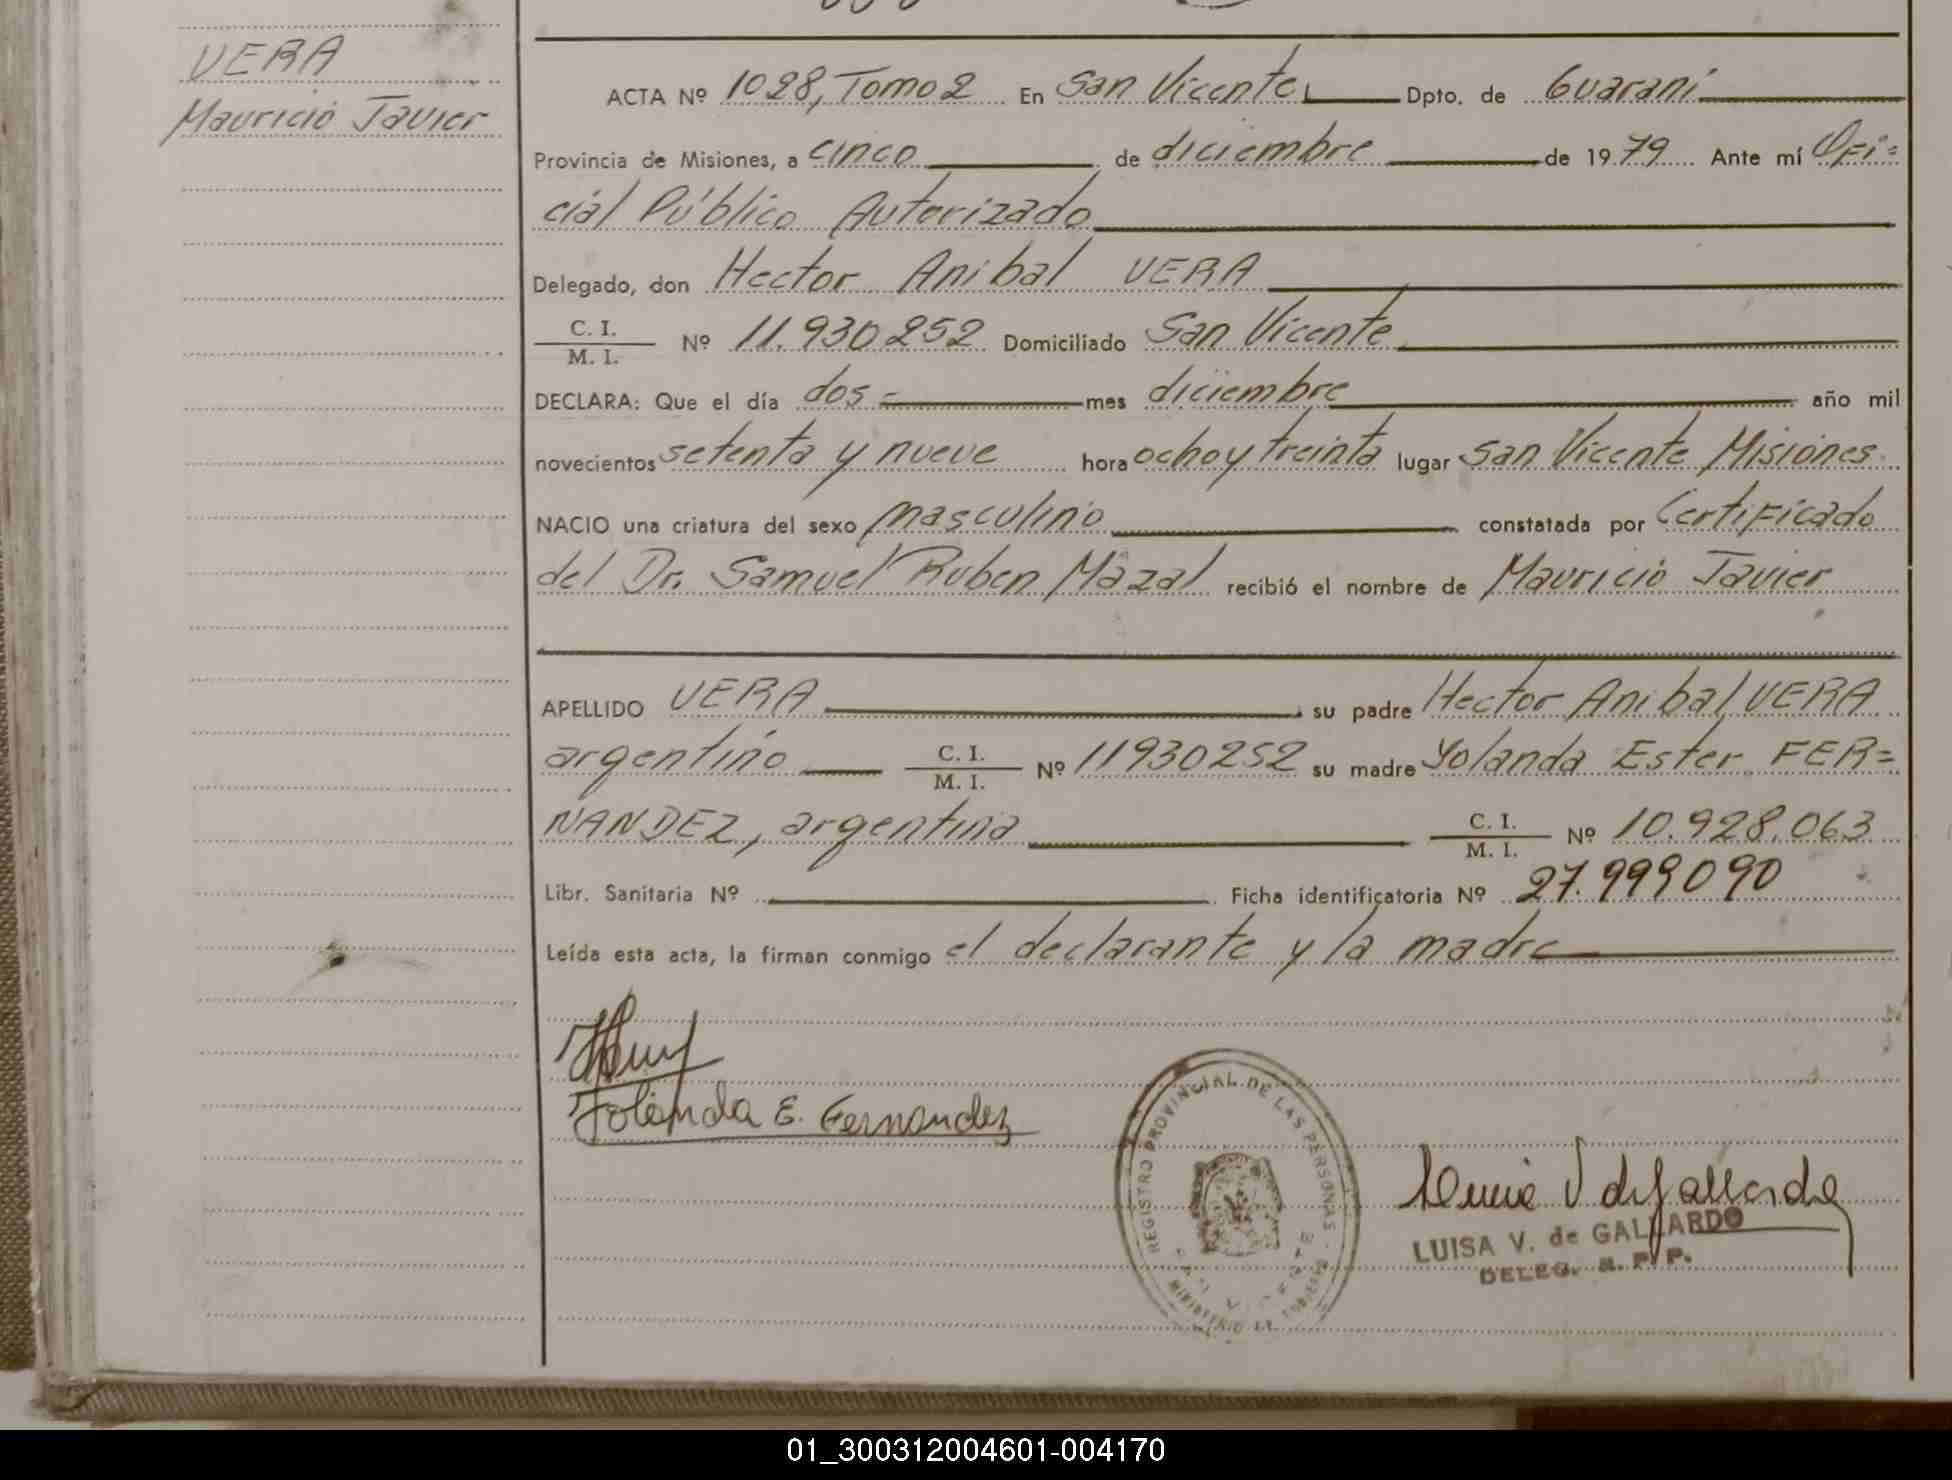 VERA
Mauricio Javier
ACTA Nº 1028, Tomo 2 En San Vicente, Dpto. de Guaraní
Provincia de Misiones, a cinco de diciembre de 1979 Ante mí Ofi=
cial Público Autorizado
Delegado, don Hector Anibal VERA
C. I.
M. I. Nº 11.930.252 Domiciliado San Vicente
DECLARA: Que el día dos = mes diciembre año mil
novecientos setenta y nueve hora ocho y treinta lugar San Vicente Misiones
NACIO una criatura del sexo masculino constatada por Certificado
del Dr. Samuel Ruben Mazal recibió el nombre de Mauricio Javier
APELLIDO VERA su padre Hector Anibal VERA
argentino C. I.
M. I. Nº 11930252 su madre Yolanda Ester FER=
NANDEZ, argentina C. I.
M. I. Nº 10.928.063
Libr. Sanitaria Nº Ficha identificatoria Nº 27.999090
Leída esta acta, la firman conmigo el declarante y la madre
Yolanda E. Fernandez
REGISTRO PROVINCIAL DE LAS PERSONAS
SAN VICENTE
MINISTERIO DE GOBIERNO
Luisa V de Gallardo
LUISA V. de GALLARDO
DELEG. R. P. P.
01_300312004601-004170